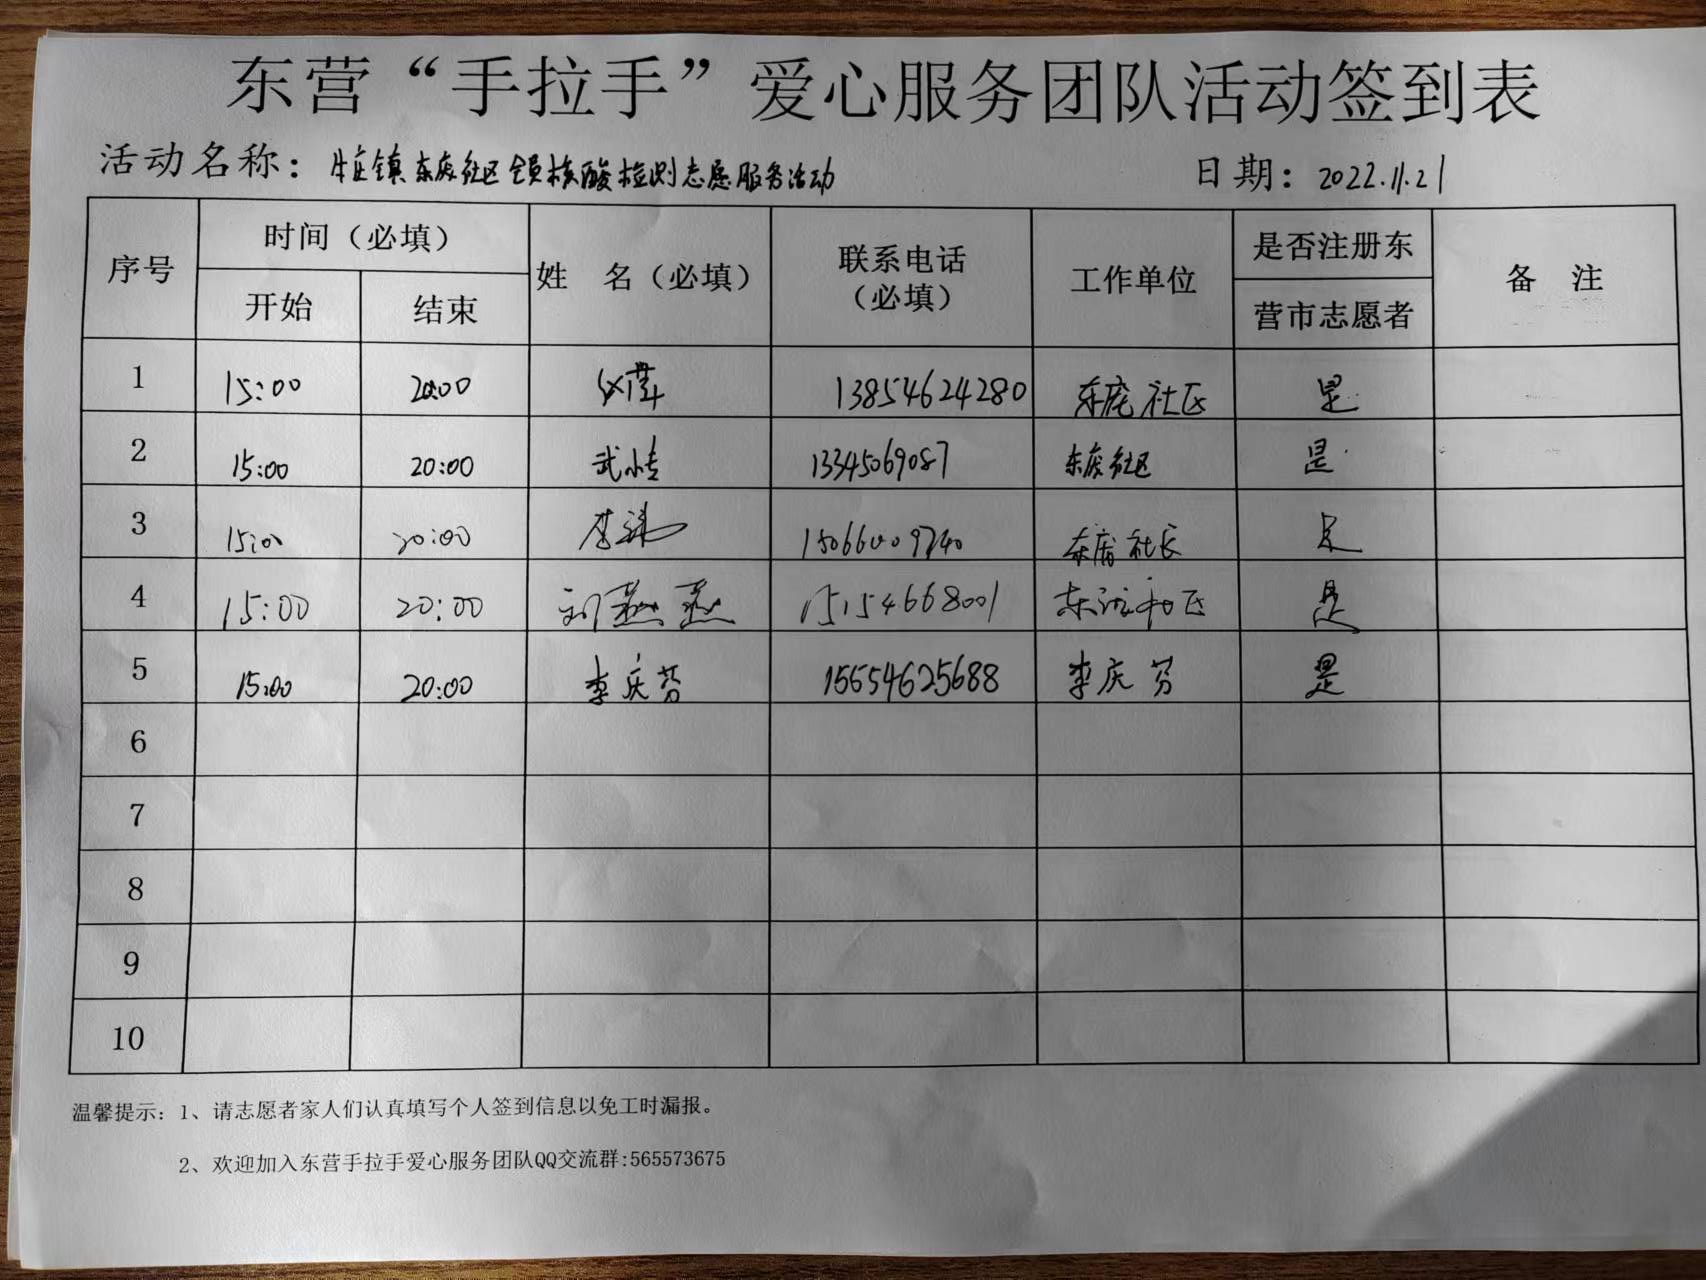 东营“手拉手”爱心服务团队活动签到表
活动名称：牛庄镇东庞社区全员核酸检测志愿服务活动 日期：2022.11.21
序号 时间（必填） 姓 名（必填） 联系电话（必填） 工作单位 是否注册东营市志愿者 备 注
开始 结束
1 15:00 20:00 13854624280 东庞社区 是
2 15:00 20:00 武 13345069087 东庞社区 是
3 15:00 20:00 李 15066009740 东庞社区 是
4 15:00 20:00 刘燕燕 15154668001 社区 是
5 15:00 20:00 李庆芳 15654625688 李庆芳 是
6
7
8
9
10
温馨提示：1、请志愿者家人们认真填写个人签到信息以免工时漏报。
2、欢迎加入东营手拉手爱心服务团队QQ交流群:565573675